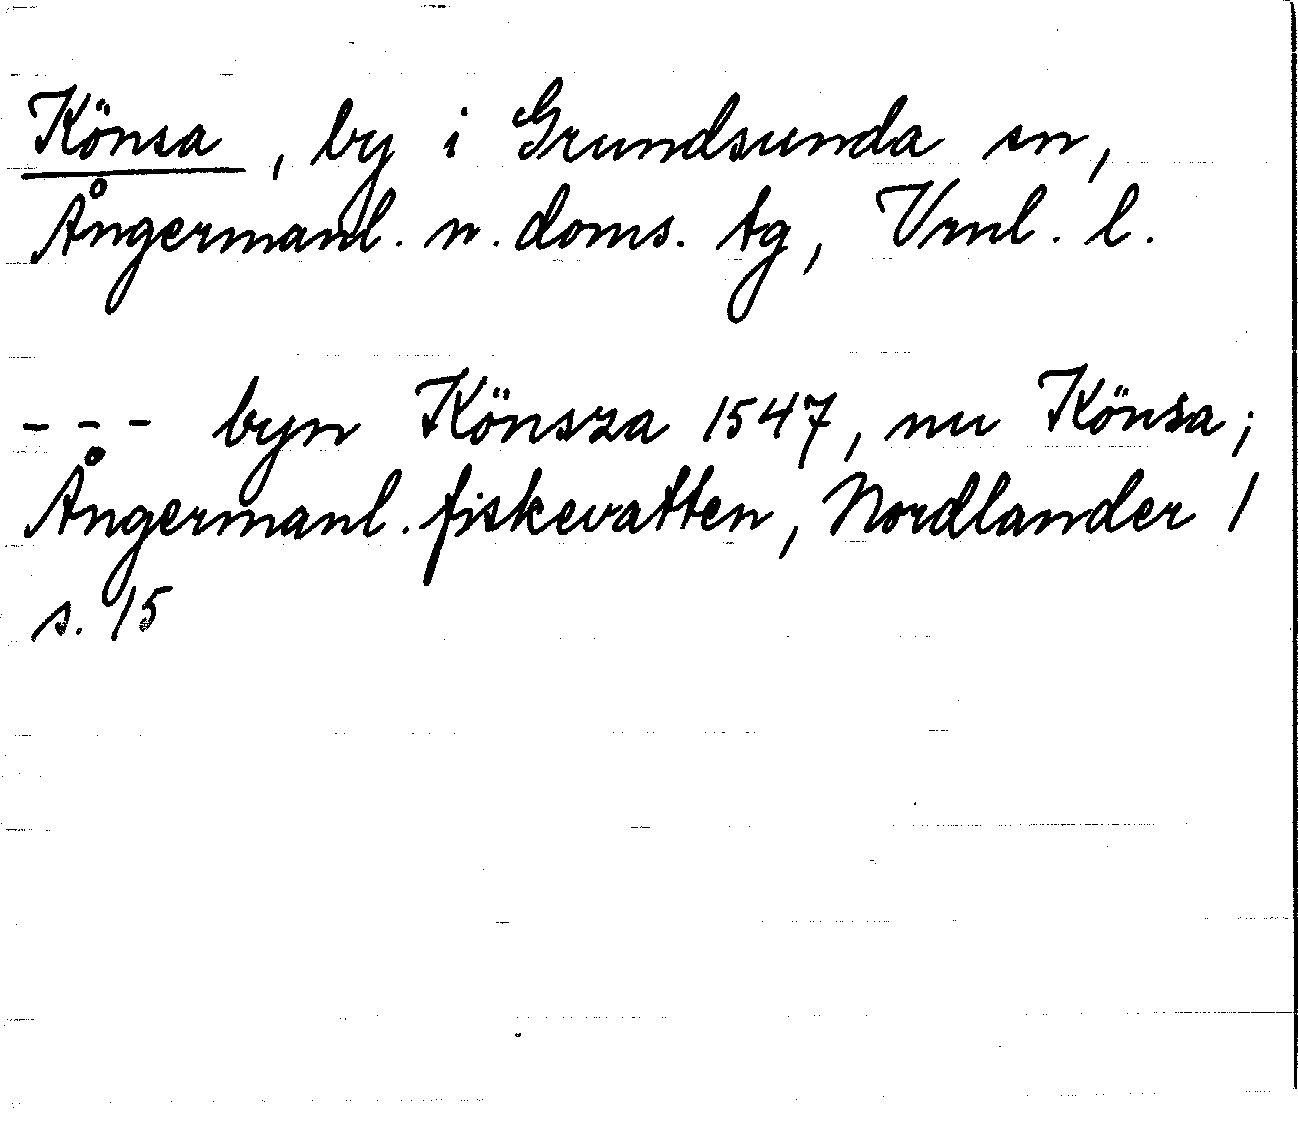 Könsa, by i Grundsunda sn,
Ångermanl. n. doms. tg, Vrnl. l.
--- byn Könsza 1547, nu Könsa;
Ångermanl. fiskevatten, Nordlander 1
s. 15